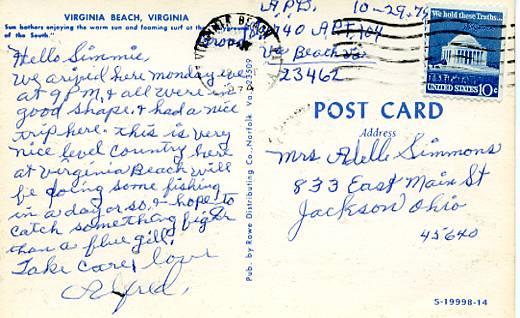 VIRGINIA BEACH, VIRGINIA
Sun bathers enjoying the warm sun and foaming surf at the
of the South."
Hello Simmie,
We arived here monday eve
at 9 P.M. & all were in
good shape. & had a nice
trip here. this is very
nice level country here
at Virginia Beach will
be going some fishing
in a day or so. & hope to
catch something bigger
than a blue gill.
Take care, love
Alfred.
Pub. by Rowe Distributing Co., Norfolk, Va. 23509
VIRGINIA BEACH
10-29.75
APT. 104
Va Beach Va.
23462
We hold these Truths...
UNITED STATES 10c
POST CARD
Address
Mrs Adelle Simmons
833 East Main St
Jackson Ohio
45640
S-19998-14